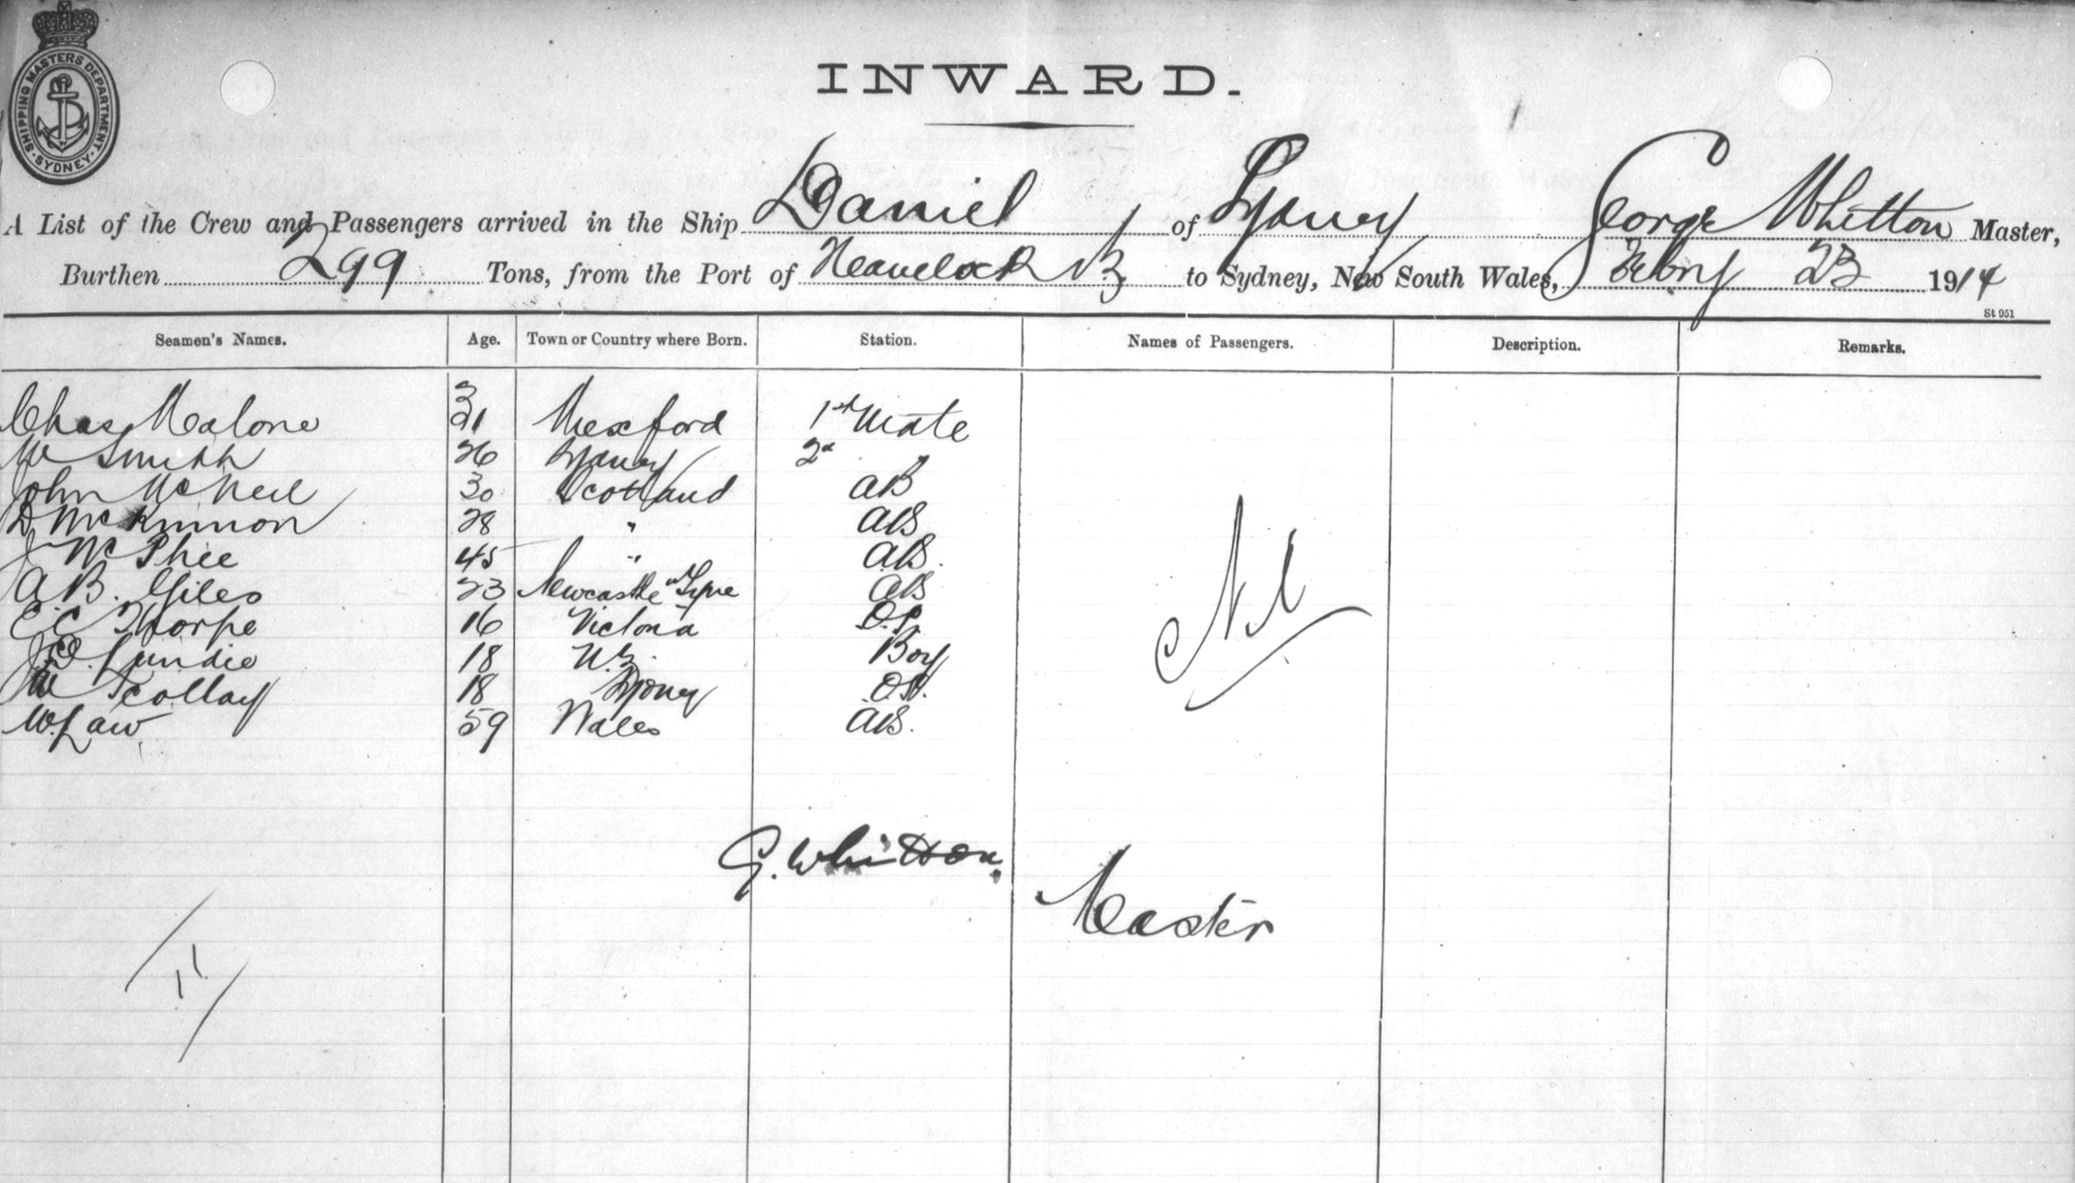 SHIPPING MASTERS DEPARTMENT. SYDNEY
INWARD.
A List of the Crew and Passengers arrived in the Ship Daniel of Sydney George Whitton Master,
Burthen 299 Tons, from the Port of Havelock NZ to Sydney, New South Wales, Febry 23 1914
St 951
Seamen's Names. Age. Town or Country where Born. Station. Names of Passengers. Description. Remarks.
Chas Malone 31 Wexford 1st Mate
W Smith 26 Sydney 2d "
John McNeil 30 Scotland AB
D McKinnon 28 " AB
J McPhee 45 " AB.
A B. Giles 23 Newcastle on Tyne AB
E C Thorpe 16 Victoria O.S.
J. Lundie 18 N.Z. Boy
Scollay 18 Sydney O.S.
W. Law 59 Wales AB.
Nil
G. Whitton
Master
11